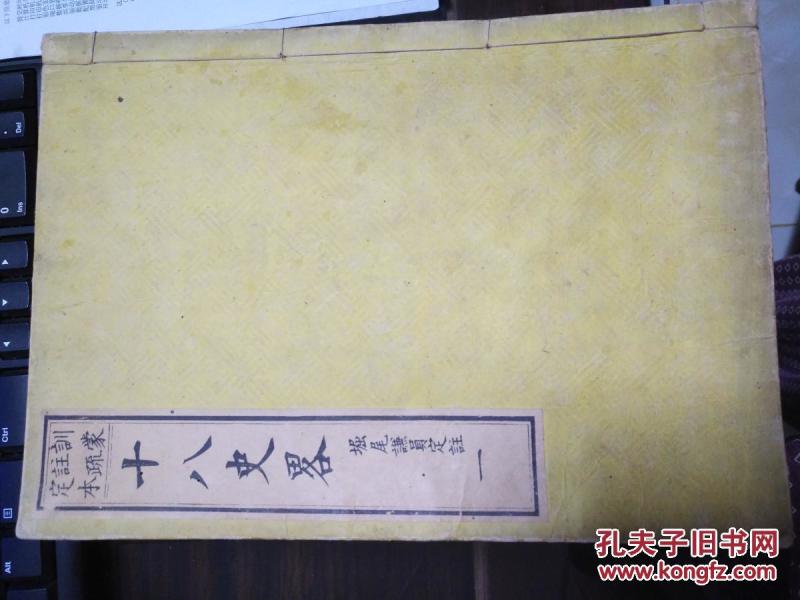 定本
註疏
訓蒙
十八史畧
堀尾謙員定註
一
Del
.
0
Ins
Ctrl
Alt
孔夫子旧书网
www.kongfz.com